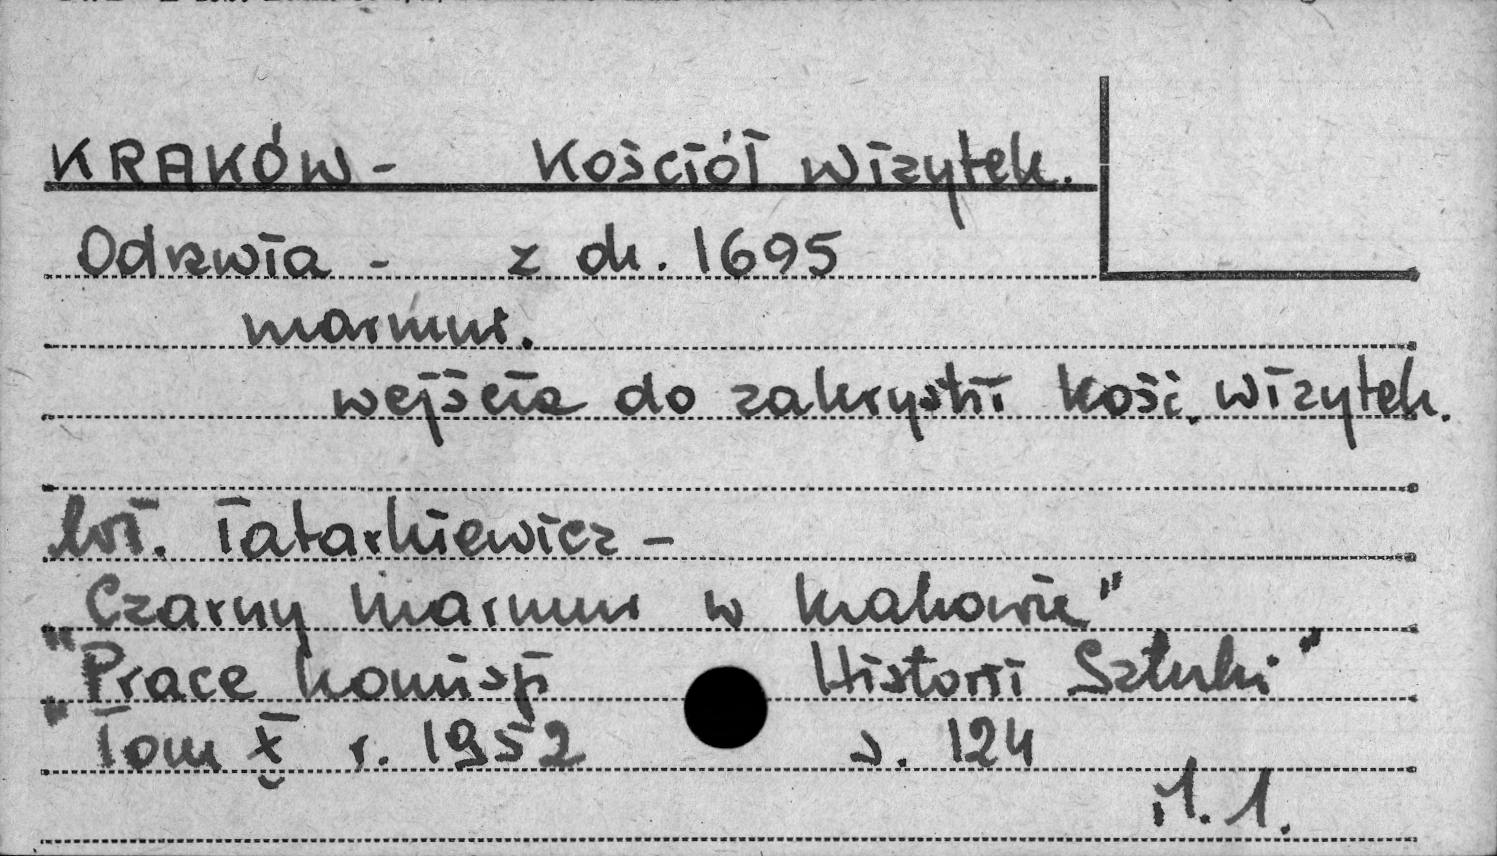 KRAKÓW - Kościół Wizytek.
Odrzwia - z ok. 1695
marmur.
wejścia do zakrystii kość. Wizytek.
Wł. Tatarkiewicz -
Czarny marmur w Krakowie"
"Prace Komisji Historii Sztuki"
"Tom X r. 1952 s. 124
il. 1.